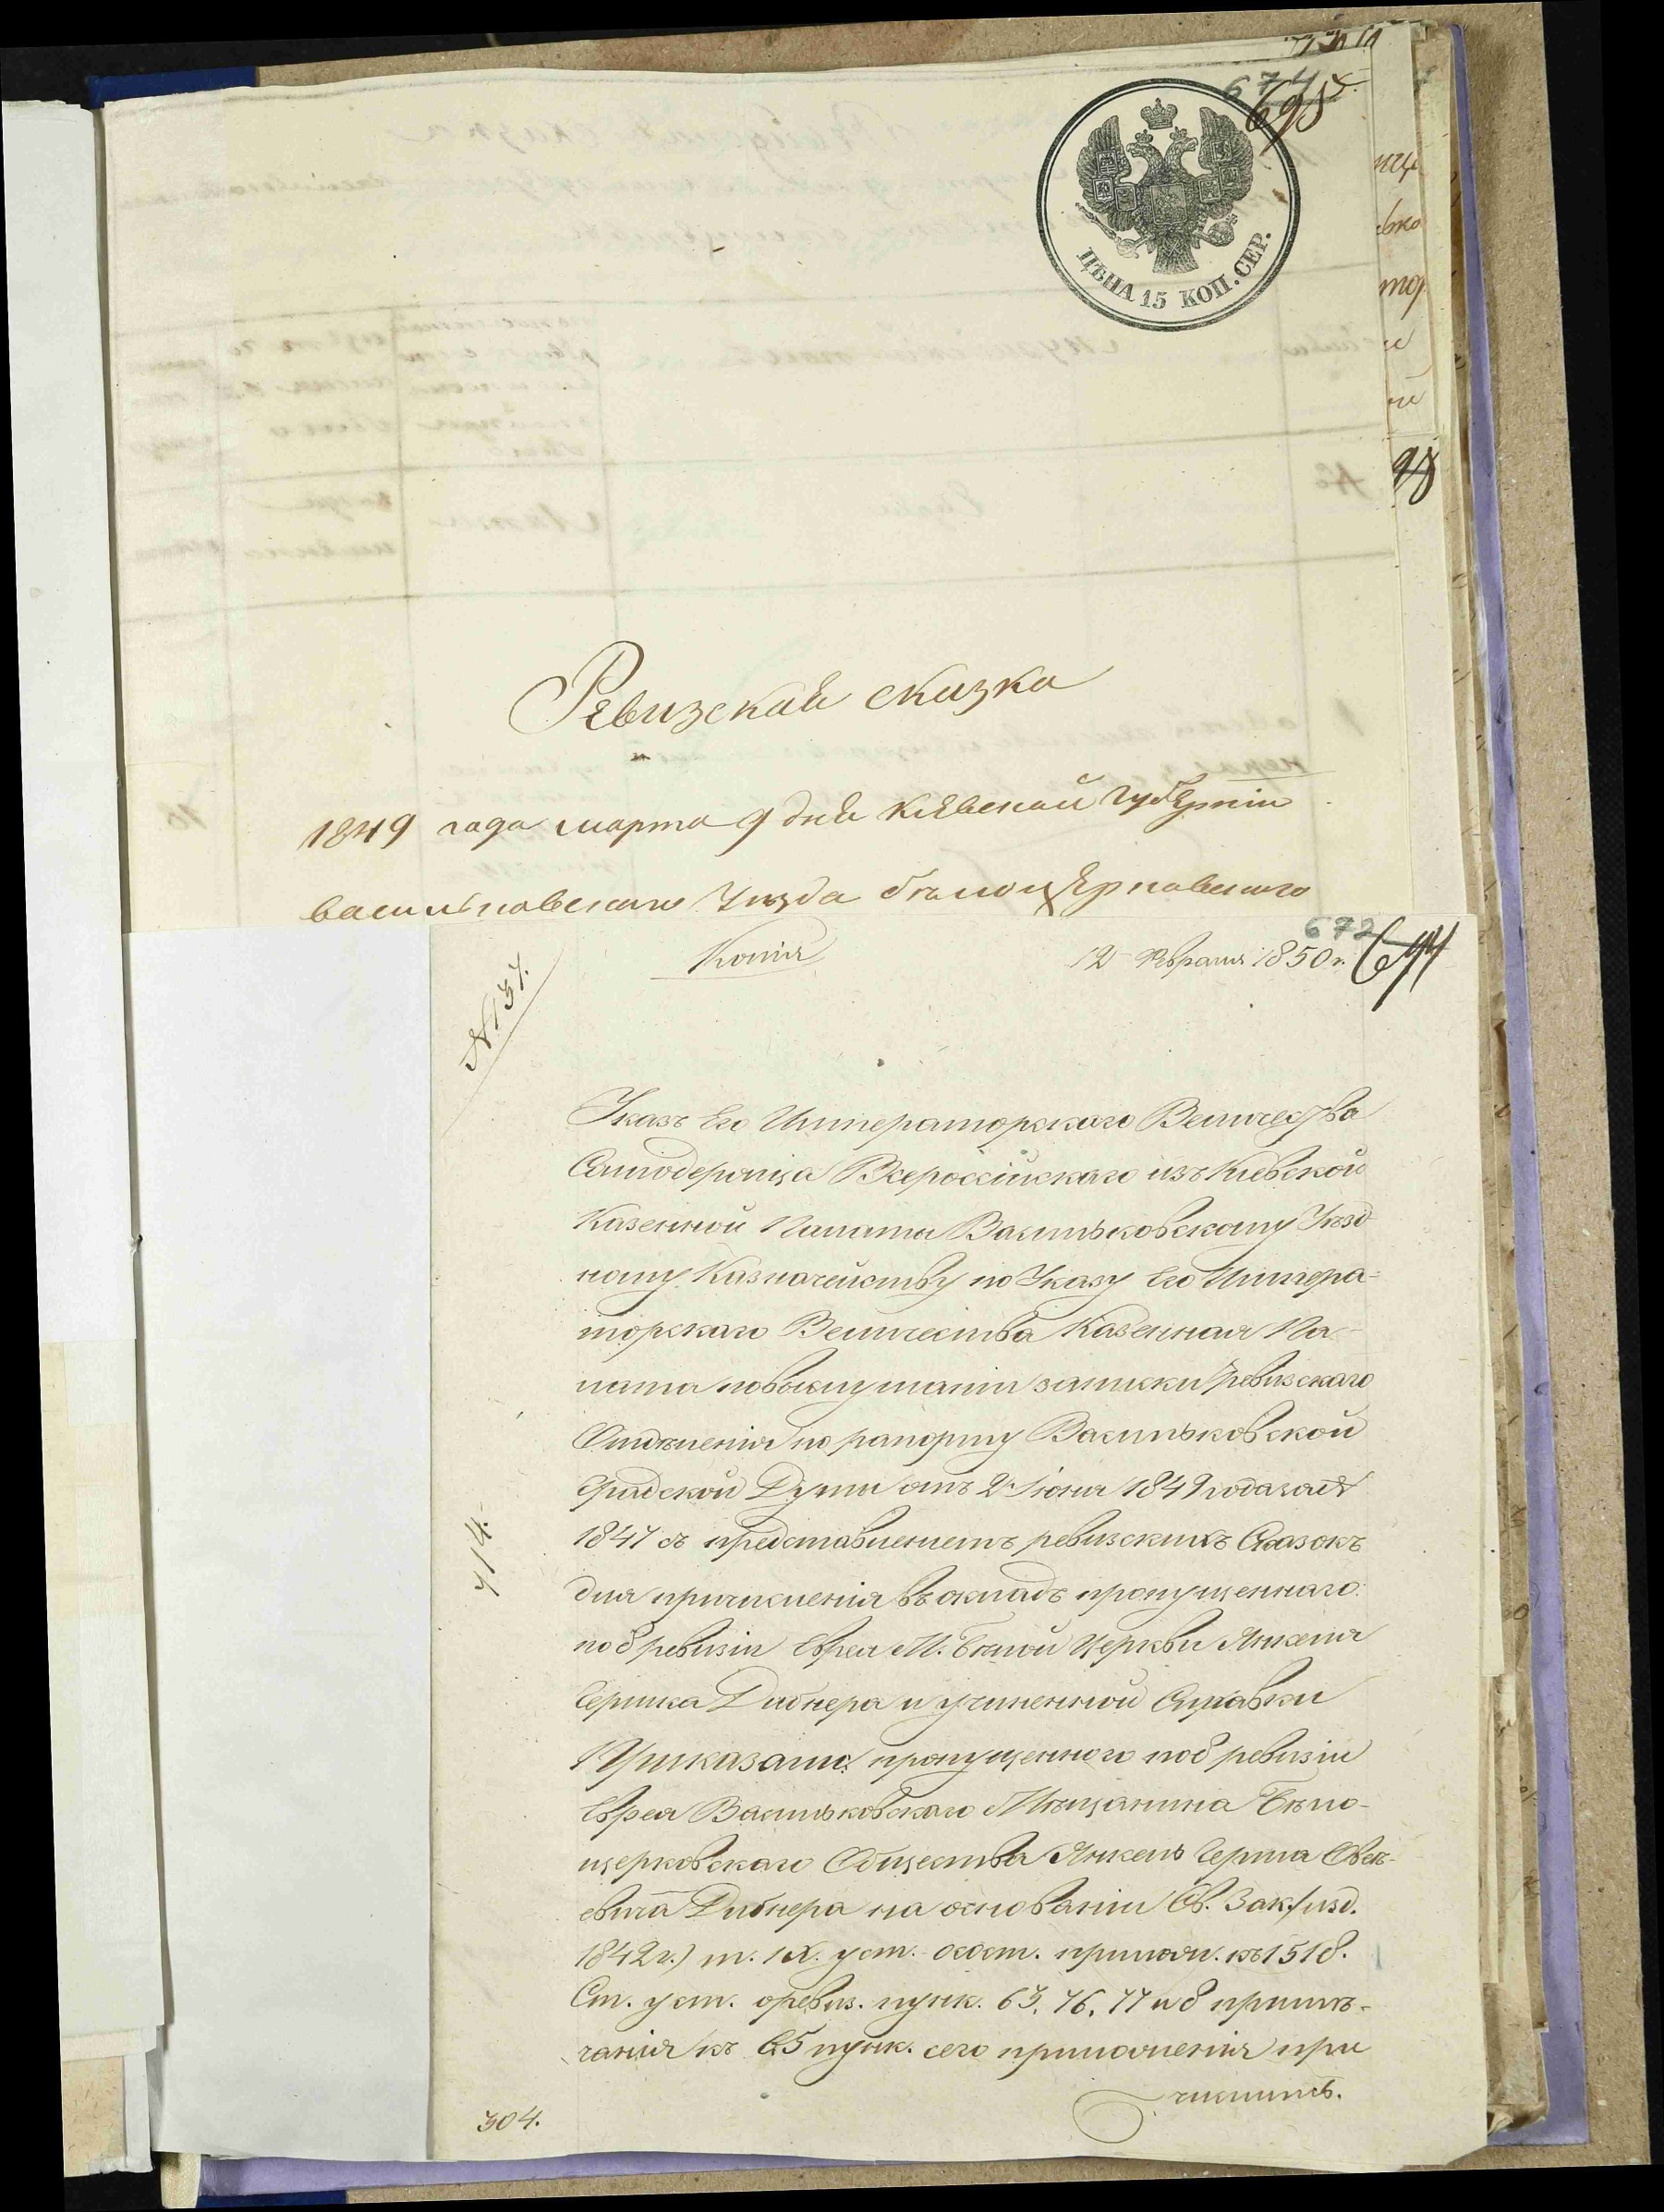 674
695
ЦѢНА 15 КОП. СЕР.
Ревизская сказка
1849 года марта 9 дня Киевской Губернiи
васильковскаго Уѣзда бѣлоцерковскаго
Копiя
12 Февраля 1850 г.
672
694
N 137.
Указъ Его Императорскаго Величества
Самодержца Всероссiйскаго изъ Кiевской
Казенной Палаты Васильковскому Уѣзд
ному Казначейству по Указу Его Импера=
торскаго Величества Казенная Па-
лата по выслушанiи записки Ревизскаго
Отдѣленiя по рапорту Васильковской
Градской Думы отъ 2 Iюня 1849 года за №
1847 съ представленiемъ ревизскихъ Сказокъ
для причисленiя въ окладъ пропущеннаго
по 8 ревизiи Еврея М. Бѣлой Церкви Янкеля
Гершка Дибнера и учиненной Справки
Приказали: пропущенного по 8 ревизiи
Еврея Васильковскаго Мѣщанина Бѣло-
церковскаго Общества Янкель Герша
евича Дибнера на основанiи Св. Зак. /изд.
1842 г.) т. IX. уст. осост. прилож. къ 1518.
Ст. уст. оревиз. пунк. 63, 76, 77 и 8 примѣ-
чанiя къ 65 пунк. сего приложенiя при
числить.
714.
304.